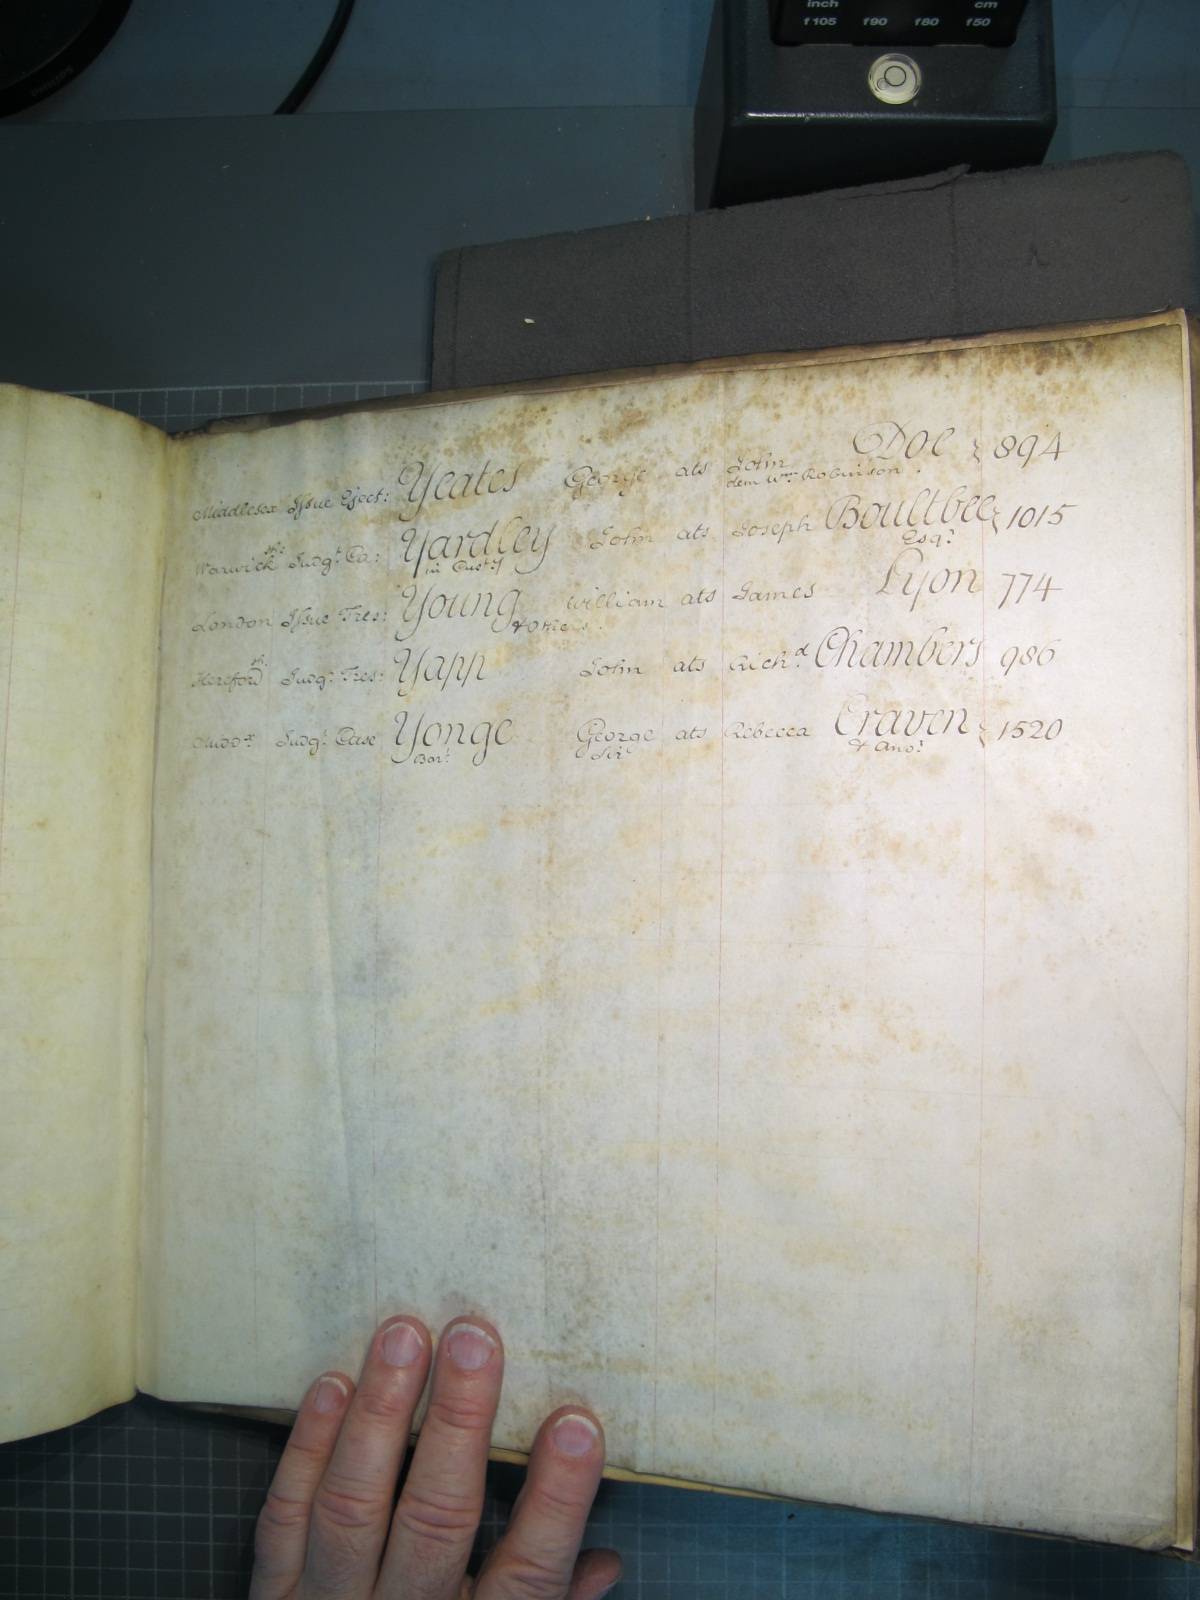 inch cm
f105 f90 f80 f50
PHILIPS
Middlesex Issue Eject: Yeates George ats John Doe } 894
dem Wm Robinson .
Warwick sh: Judgt Ca: Yardley John ats Joseph Boultbee } 1015
in Custy Esqr
London Issue Tres: Young William ats James Lyon 774
& others .
Hereford sh. Judgt Tres: Yapp John ats Richd Chambers 986
Middx Judgt Case Yonge George ats Rebecca Craven } 1520
Bart Sir & Anor